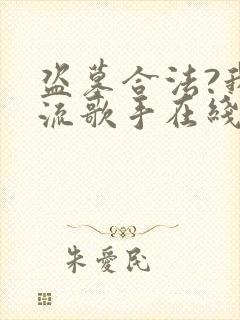 盗墓合法?我
流歌手在綫
朱愛民